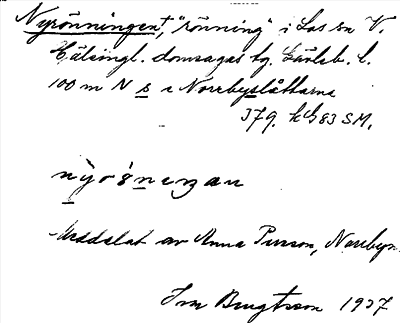 Nyrönningen†, "rönning" i Los sn V.
Hälsingl. domsagas tg. Gävleb. l.
100 m N s i Norrbyslåttarna
379. hG83 SM.
Meddelat av Anna Persson, Norrbyn
Ivar Bengtsson 1937